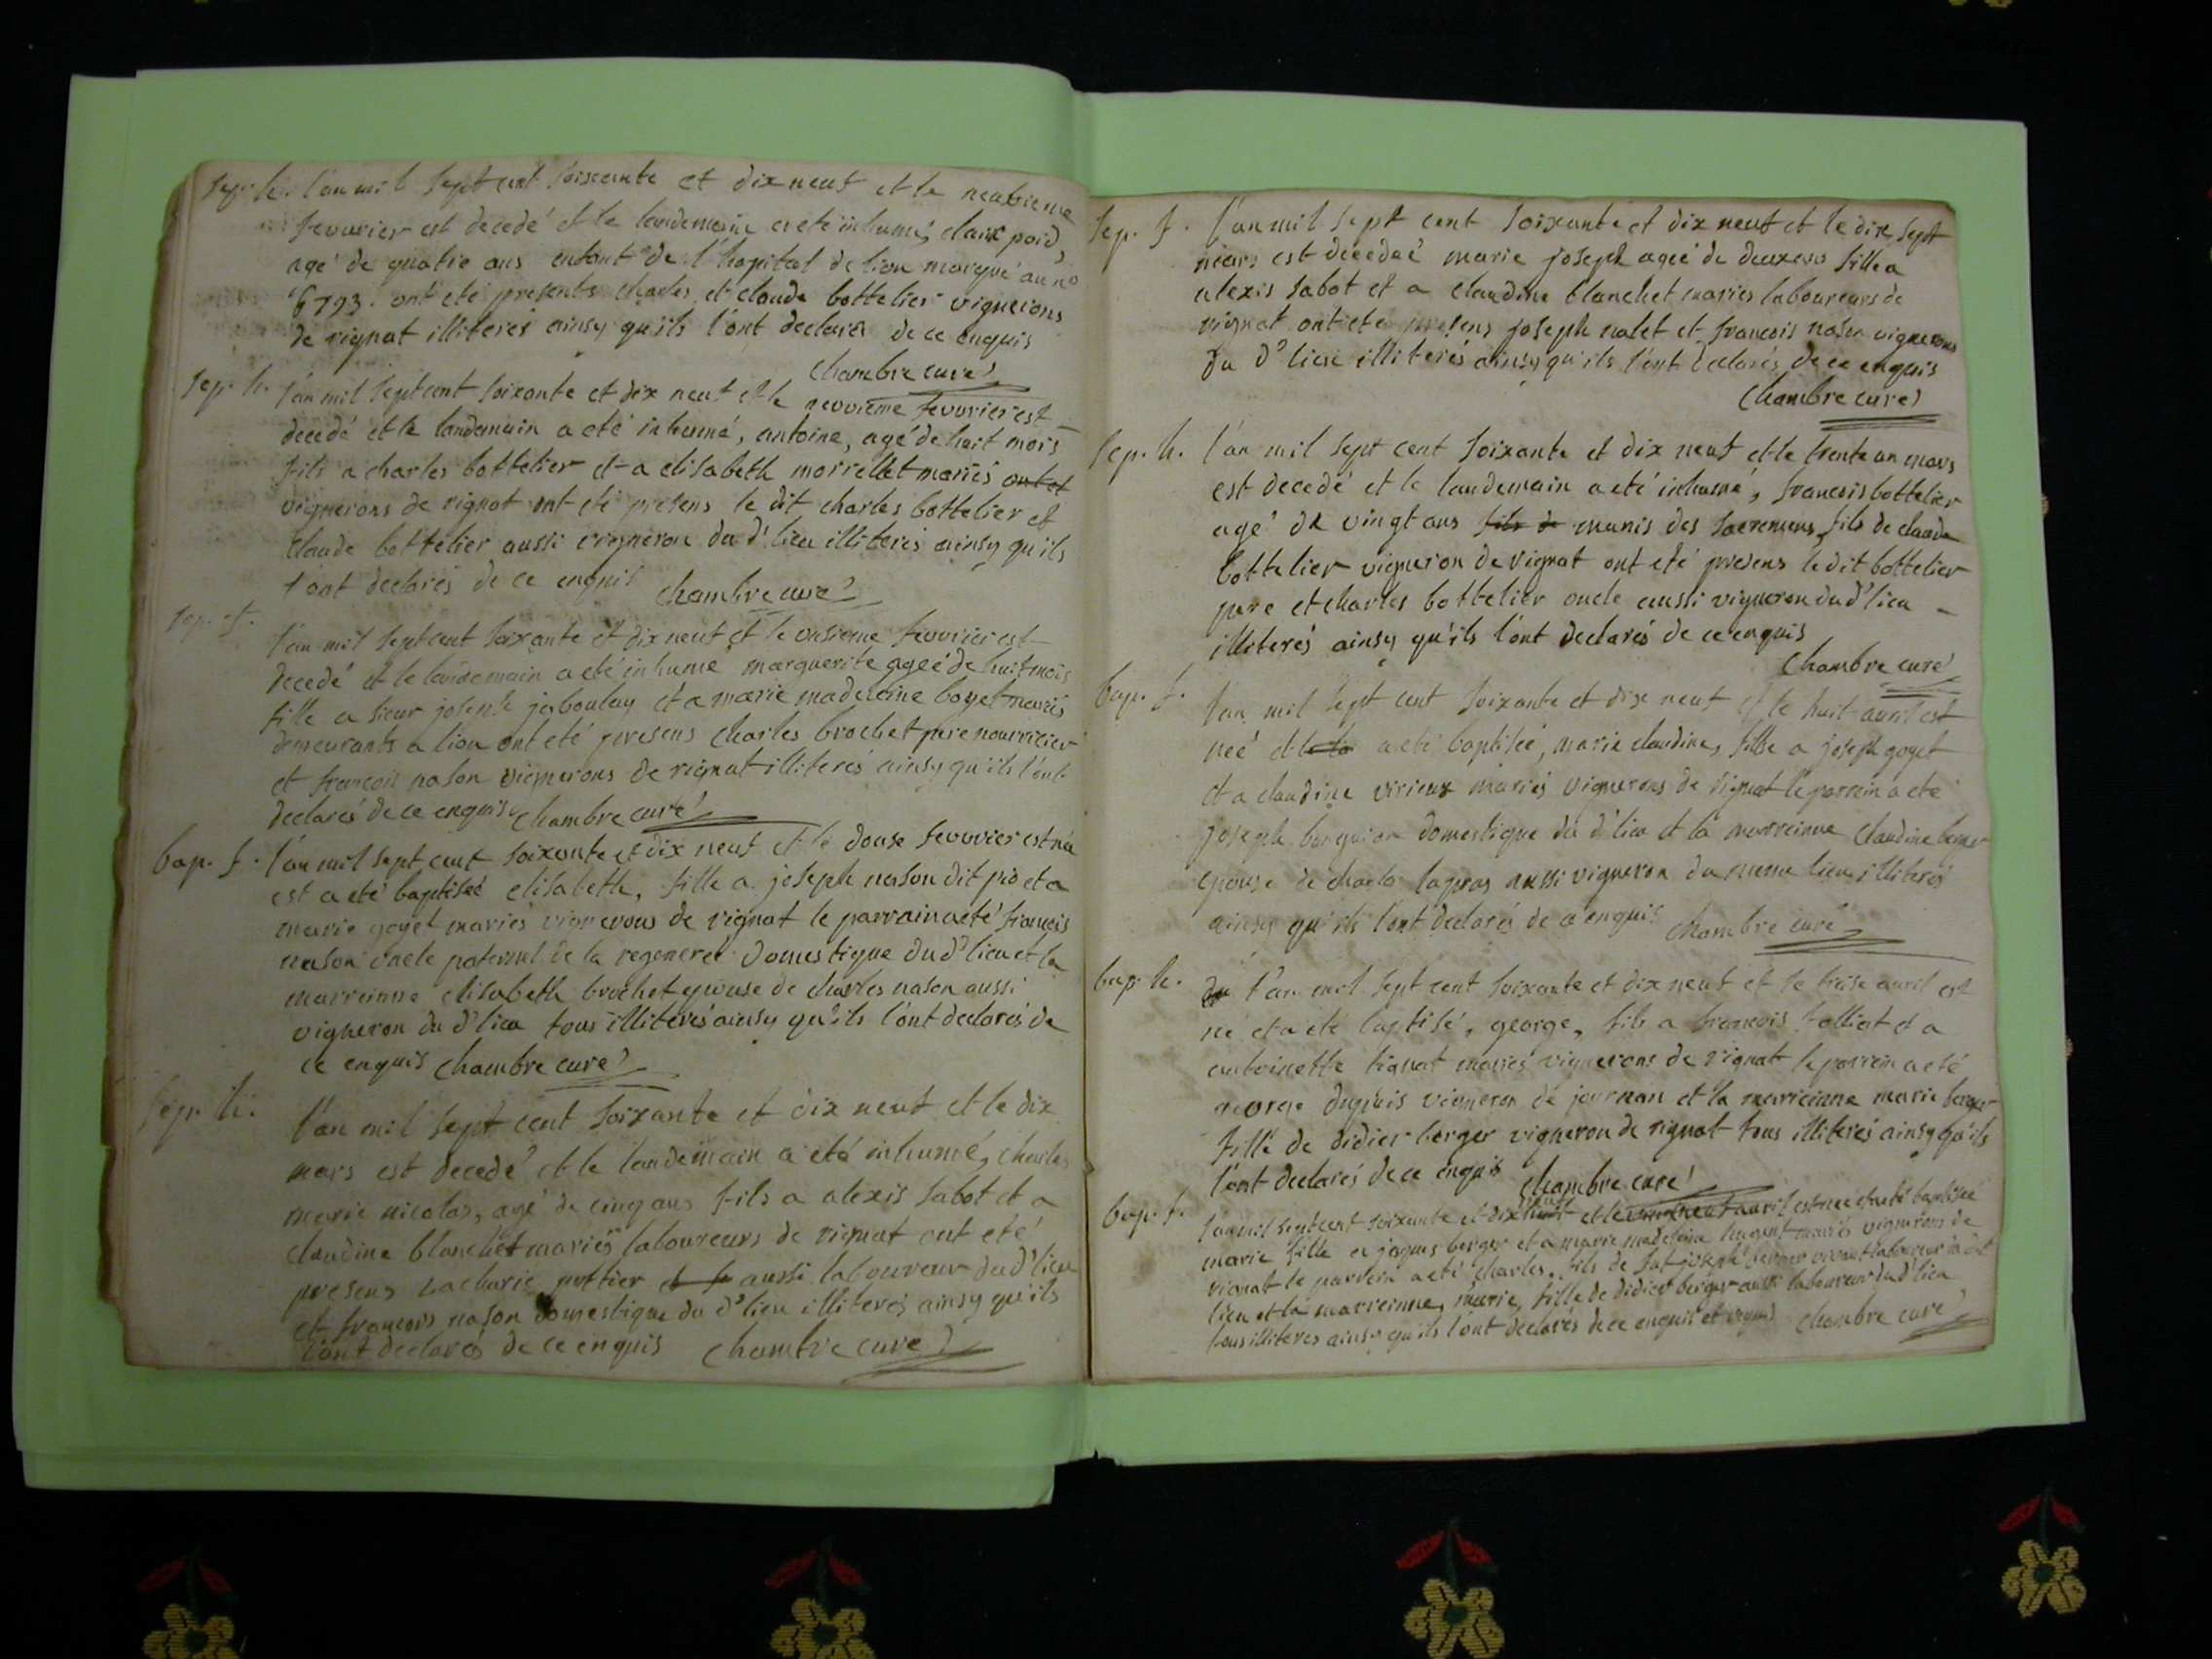 sep. h. l'an mil sept cent soiscente et dix neuf et le neuvieme
fevurier est decedé et le landemain a eté inhumé, claix poid,
agé de quatre ans enfant de l'hopital de lion marqué au n°
6793. ont eté presents charles et claude bottelier vignerons
de rignat illiterés ainsy qu'ils l'ont declarés de ce enquis
chambre curé
sep. h. l'an mil sept cent soixante et dix neuf et le neuvieme fevurier est
decedé et le landemain a eté inhumé, antoine, agé de huit mois
fils a charles bottelier et a elisabeth morrellet mariés ont et
vignerons de rignat ont eté presens le dit charles bottelier et
claude bottelier aussi vigneron du d' lieu illiterés ainsy qu'ils
l'ont declarés de ce enquis chambre curé
sep. f. l'an mil sept cent soixante et dix neuf et le onsieme fevurier est
decedé et le landemain a eté inhumé marguerite ageé de huit mois
fille a sieur joseph jaboulay et a marie madeleine boyet mariés
demeurants a lion ont eté presens charles brochet pere nourricier
et francois nason vignerons de rignat illiterés ainsy qu'ils l'ont
declarés de ce enquis chambre curé
bap. f. l'an mil sept cent soixante et dix neuf et le douse fevurier est née
est a eté baptiseé elisabeth, fille a joseph nason dit pio et a
marie goyet mariés vignerons de rignat le parrain a eté francois
nason oncle paternel de la regenereé domestique du d' lieu et la
marreinne elisabeth brochet epouse de charles nason aussi
vigneron du d' lieu tous illiterés ainsy qu'ils l'ont declarés de
ce enquis chambre curé
sep. h. l'an mil sept cent soixante et dix neuf et le dix
mars est decedé et le landemain a eté inhumé, charles
marie nicolas, agé de cinq ans fils a alexis sabot et a
claudine blanchet mariés laboureurs de rignat ont eté
presens zacharie pottier et f aussi laboureur du d' lieu
et francois nason domestique du d' lieu illiterés ainsy qu'ils
l'ont declarés de ce enquis chambre curé
sep. f. l'an mil sept cent soixante et dix neuf et le dix sept
mars est decedeé marie joseph ageé de deux ans fille a
alexis sabot et a claudine blanchet mariés laboureurs de
rignat ont eté presens joseph nalet et francois nason vignerons
du d' lieu illiterés ainsy qu'ils l'ont declarés de ce enquis
chambre curé
sep. h. l'an mil sept cent soixante et dix neuf et le trente un mars
est decedé et le landemain a eté inhumé, francois bottelier
agé de vingt ans fils de munis des sacremens, fils de claude
bottelier vigneron de rignat ont eté presens le dit bottelier
pere et charles bottelier oncle aussi vigneron du d' lieu
illiterés ainsy qu'ils l'ont declarés de ce enquis
chambre curé
bap. f. l'an mil sept cent soixante et dix neuf et le huit avril est
neé et le la a eté baptiseé, marie claudine, fille a joseph goyet
et a claudine virieux mariés vignerons de rignat le parrein a eté
joseph domestique du d' lieu et la marreinne claudine
epouse de charle lapras aussi vigneron du meme lieu illiterés
ainsy qu'ils l'ont declarés de ce enquis chambre curé
bap. h. du l'an mil sept cent soixante et dix neuf et le treise avril est
né et a eté baptisé, george, fils a francois folliat et a
antoinette tignat mariés vignerons de rignat le parrein a eté
george dupuis vigneron de journan et la marreinne marie berger
fille de didier berger vigneron de rignat tous illiterés ainsy qu'ils
l'ont declarés de ce enquis chambre curé
neuf
bap. f. l'an mil sept cent soixante et dix huit et le vint neuf avril est née et a eté baptisée
marie fille a jaques berger et a marie madeleine mariés vignerons de
rignat le parrein a eté charles, fils de joseph berger laboureur du dit
lieu et la marreinne, marie, fille de didier berger aussi laboureur du d' lieu
tous illiterés ainsy qu'ils l'ont declarés de ce enquis et requis chambre curé